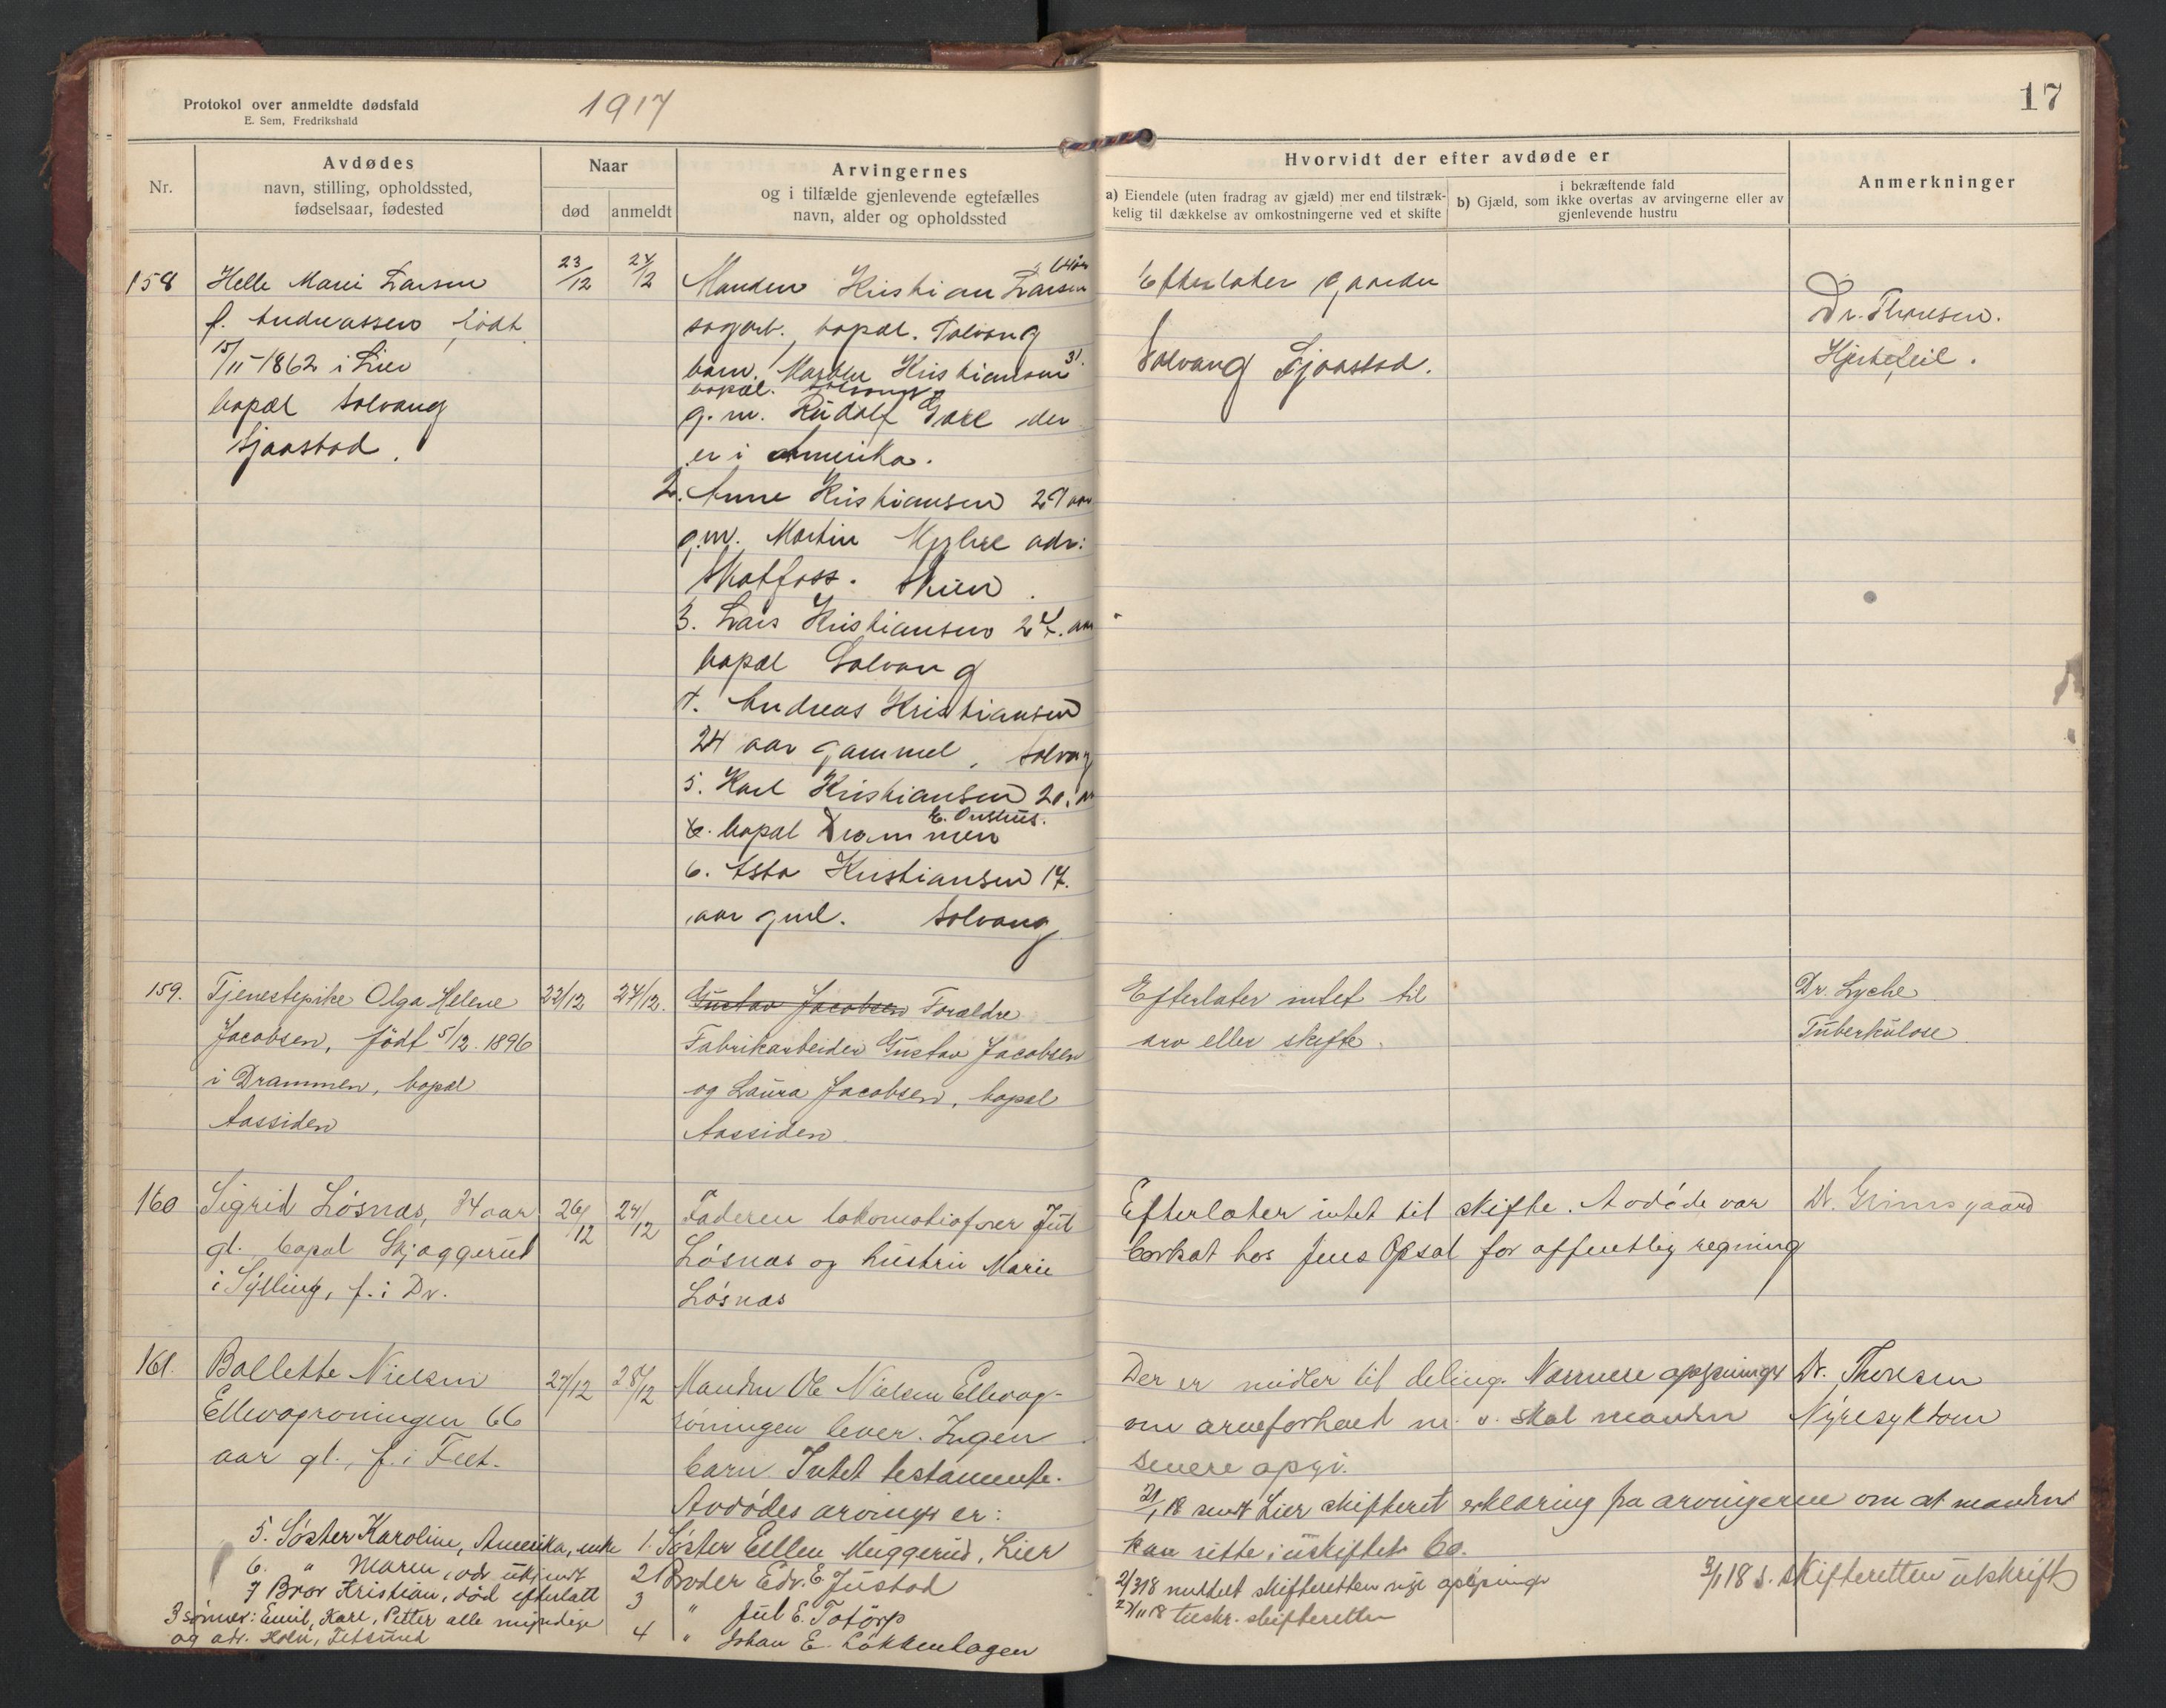 Protokol over anmeldte dødsfald
E. Sem, Fredrikshald
1917
17
Nr.
Avdødes
navn, stilling, opholdssted,
fødselsaar, fødested
Naar
død
anmeldt
Arvingernes
og i tilfælde gjenlevende egtefælles
navn, alder og opholdssted
Hvorvidt der efter avdøde er
a) Eiendele (uten fradrag av gjæld) mer end tilstræk-
kelig til dækkelse av omkostningerne ved et skifte
i bekræftende fald
b) Gjæld, som ikke overtas av arvingerne eller av
gjenlevende hustru
Anmerkninger
158
Helle Marie Larsen
f. Andreassen, født
15/11-1862 i Lier
bopæl Solvang
Sjaastad.
23/12
27/12
Manden Kristian Larsen
sagarb., bopæl. Solvang
barn. Marthe Kristiansen 31.
bopæl. Solvang
g. m. Rudolf der
er i Amerika.
2. Anne Kristiansen 29 aar
g.m. Martin adr:
Skotfoss. Skien.
3. Lars Kristiansen 27. aar
bopæl Solvang
4. Andreas Kristiansen
24 aar gammel, Solvang
5. Karl Kristiansen 20. aar
bopæl Drammen
6. Asta Kristiansen 17.
aar gml. Solvang
Efterlater Gaarden
Solvang Sjaastad.
Dr. Thoresen.
Hjertefeil.
159.
Tjenestepike Olga Helene
Jacobsen, født 5/12. 1896
i Drammen, bopæl
Aassiden
22/12
27/12.
Gustav Jacobsen Forældre
Fabrikarbeider Gustav Jacobsen
og Laura Jacobsen, bopæl
Aassiden.
Efterlater intet til
arv eller skifte.
Dr. Lyche
Tuberkulose.
160
Sigrid Løsnæs, 34 aar
gl. bopæl Skjæggerud
i Sylling, f. i Dr.
26/12
27/12
Faderen lokomotivfører Jul
Løsnæs og hustru Marie
Løsnæs
Efterlater intet til skifte. Avdøde var
bortsat hos Jens Opsal for offentlig regning
Dr. Grimsgaard
161.
Ballette Nielsen
66
aar gl., f. i Feet.
27/12
28/12
Manden Ole Nielsen
lever. Ingen
barn. Intet testamente.
Avdødes arvinger er:
1. Søster Ellen Muggerud, Lier
2 Broder Edv. E. Justad
3 " Jul E. Totorp
4 " Johan E. Løkkenhagen
5. Søster Karoline, Amerika, enke
6. " Maren, adr ukjendt
7 Bror Kristian, død efterlatt
3 sønner: Emil, Karl, Petter alle myndige
og adr. Holn, Fetsund
Der er midler til deling. Nærmere opgivelse
om arveforhold m. v. skal manden
senere opgi.
21/1 18 sendt Lier skifteret erklæring fra arvingerne om at manden
kan sitte i uskiftet bo.
2/3 18 meddelt skifteretten nye oplysninger
27/11 18 tilskr. skifteretten
Dr. Thoresen
Nyresykdom
3/1 18 s. skifteretten utskrift